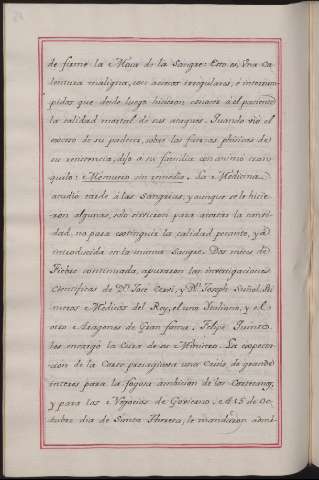 de fame la Masa de la Sangre: Esto es, Una Ca-
lentura maligna, con accesos irregulares, è interrum-
pidos que desde luego hicieron conocer à el paciente
la calidad mortal de sus ataques. Quando viò el
exceso de su padecer, sobre las fuerzas phisicas de
su resistencia, dijo a su familia con animo tran-
quilo: Me muero sin remedio. La Medicina
acudiò tarde à las Sangrias; y aunque se le hicie-
ron algunas, solo sirvieron para acortar la canti-
dad, no para extinguir la calidad pecante, ya
introducida en la misma Sangre. Dos meses de
Fiebre continuada, apuraron las investigaciones
Cientificas de Dn. José Cervi, y Dn. Joseph Suñol, Pri-
meros Medicos del Rey, el uno Italiano, y el
otro Aragones de Gran fama. Felipe Quinto
les encargò la Cura de su Ministro. La especta-
cion de la Corte presagiava una Crisis, de grande
interes para la fogosa ambicion de los Cortesanos,
y para los Negocios de Govierno. A 15 de Oc-
tubre dia de Santa Theresa, le mandaron admi-